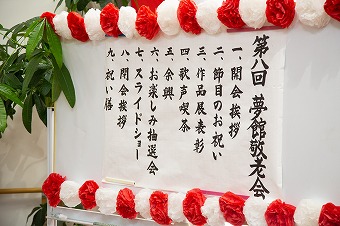 第八回 夢館敬老会
一、開会挨拶
二、節目のお祝い
三、作品展表彰
四、歌声喫茶
五、余興
六、お楽しみ抽選会
七、スライドショー
八、閉会挨拶
九、祝い膳